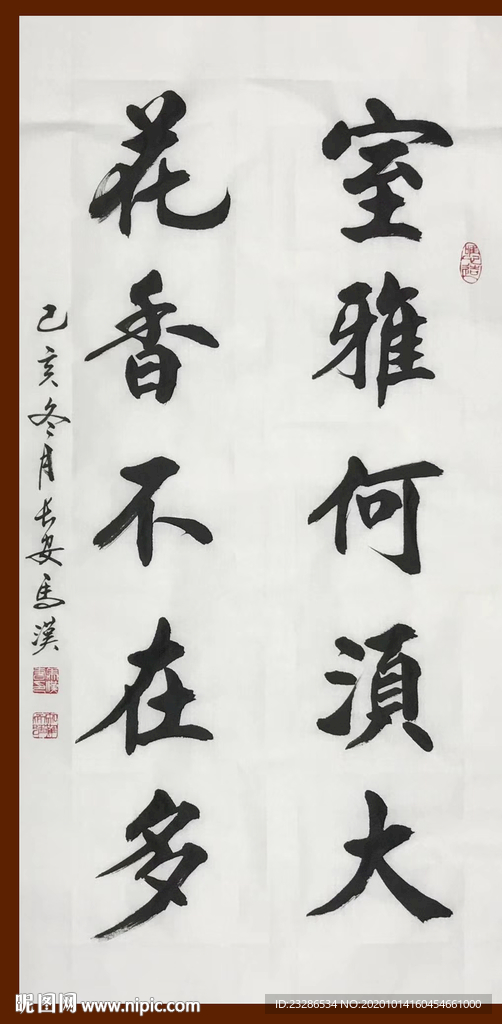 室雅何須大
花香不在多
己亥冬月长安馬漢
昵图网 www.nipic.com
ID:23286534 NO:20201014160454661000